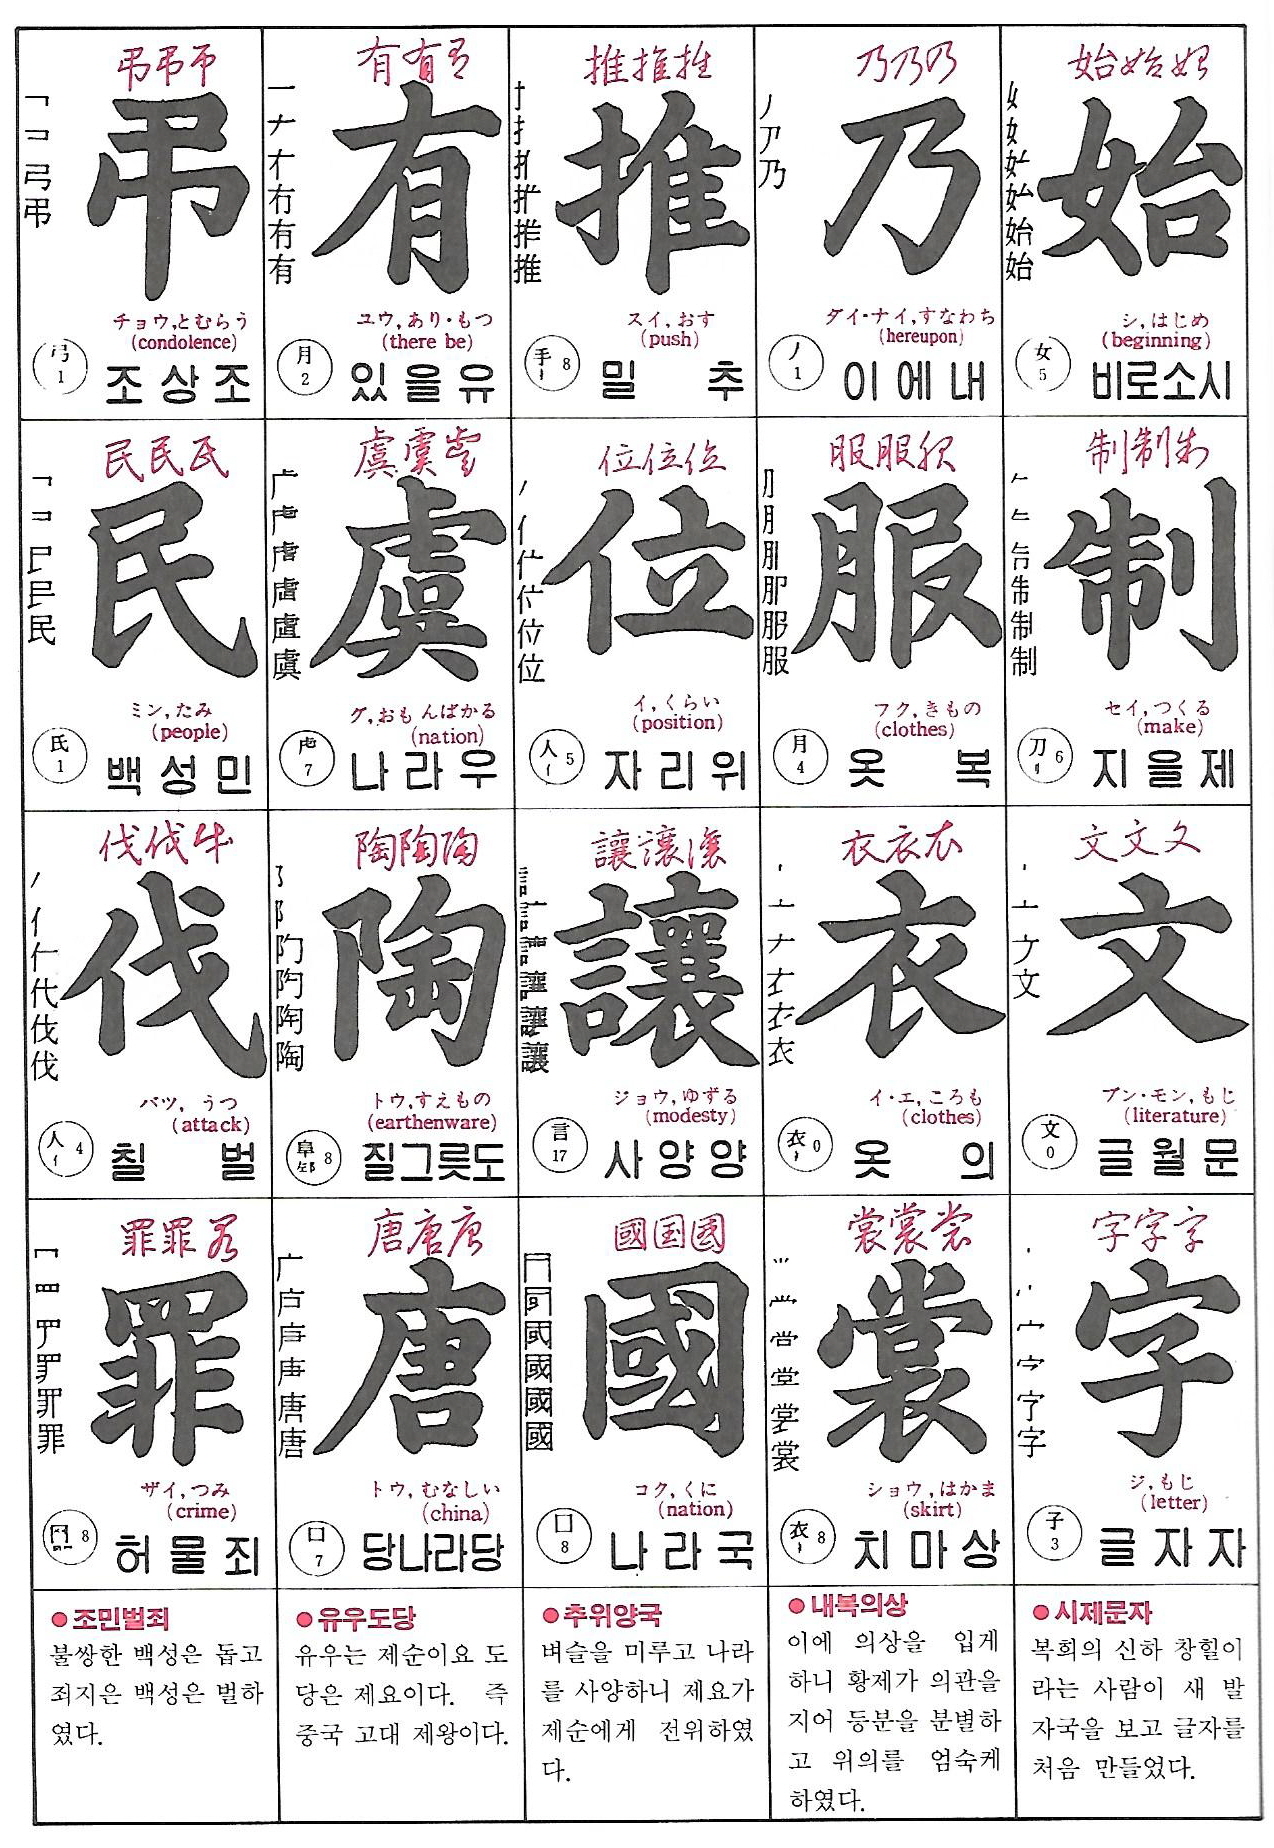 始始始
始
シ,はじめ
(beginning)
女
5
비로소시
制制制
制
セイ,つくる
(make)
刀
刂 6
지을제
文文文
文
ブン・モン,もじ
(literature)
文
0
글월문
字字字
字
ジ,もじ
(letter)
子
3
글자자
●시제문자
복희의 신하 창힐이
라는 사람이 새 발
자국을 보고 글자를
처음 만들었다.
乃乃乃
乃
ダイ・ナイ,すなわち
(hereupon)
丿
1
이에내
服服服
服
フク,きもの
(clothes)
月
4
옷 복
衣衣衣
衣
イ・エ,ころも
(clothes)
衣
0
옷 의
裳裳裳
裳
ショウ,はかま
(skirt)
衣
8
치마상
●내복의상
이에 의상을 입게
하니 황제가 의관을
지어 등분을 분별하
고 위의를 엄숙케
하였다.
推推推
推
スイ,おす
(push)
手
扌 8
밀 추
位位位
位
イ,くらい
(position)
人
亻 5
자리위
讓讓讓
讓
ジョウ,ゆずる
(modesty)
言
17
사양양
國国國
國
コク,くに
(nation)
囗
8
나라국
●추위양국
벼슬을 미루고 나라
를 사양하니 제요가
제순에게 전위하였
다.
有有有
有
ユウ,あり・もつ
(there be)
月
2
있을유
虞虞虞
虞
グ,おもんばかる
(nation)
虍
7
나라우
陶陶陶
陶
トウ,すえもの
(earthenware)
阜
8
질그릇도
唐唐唐
唐
トウ,むなしい
(china)
口
7
당나라당
●유우도당
유우는 제순이요 도
당은 제요이다. 즉
중국 고대 제왕이다.
弔弔弔
弔
チョウ,とむらう
(condolence)
弓
1
조상조
民民民
民
ミン,たみ
(people)
氏
1
백성민
伐伐伐
伐
バツ, うつ
(attack)
人
亻 4
칠 벌
罪罪罪
罪
ザイ,つみ
(crime)
8
허물죄
●조민벌죄
불쌍한 백성은 돕고
죄지은 백성은 벌하
였다.